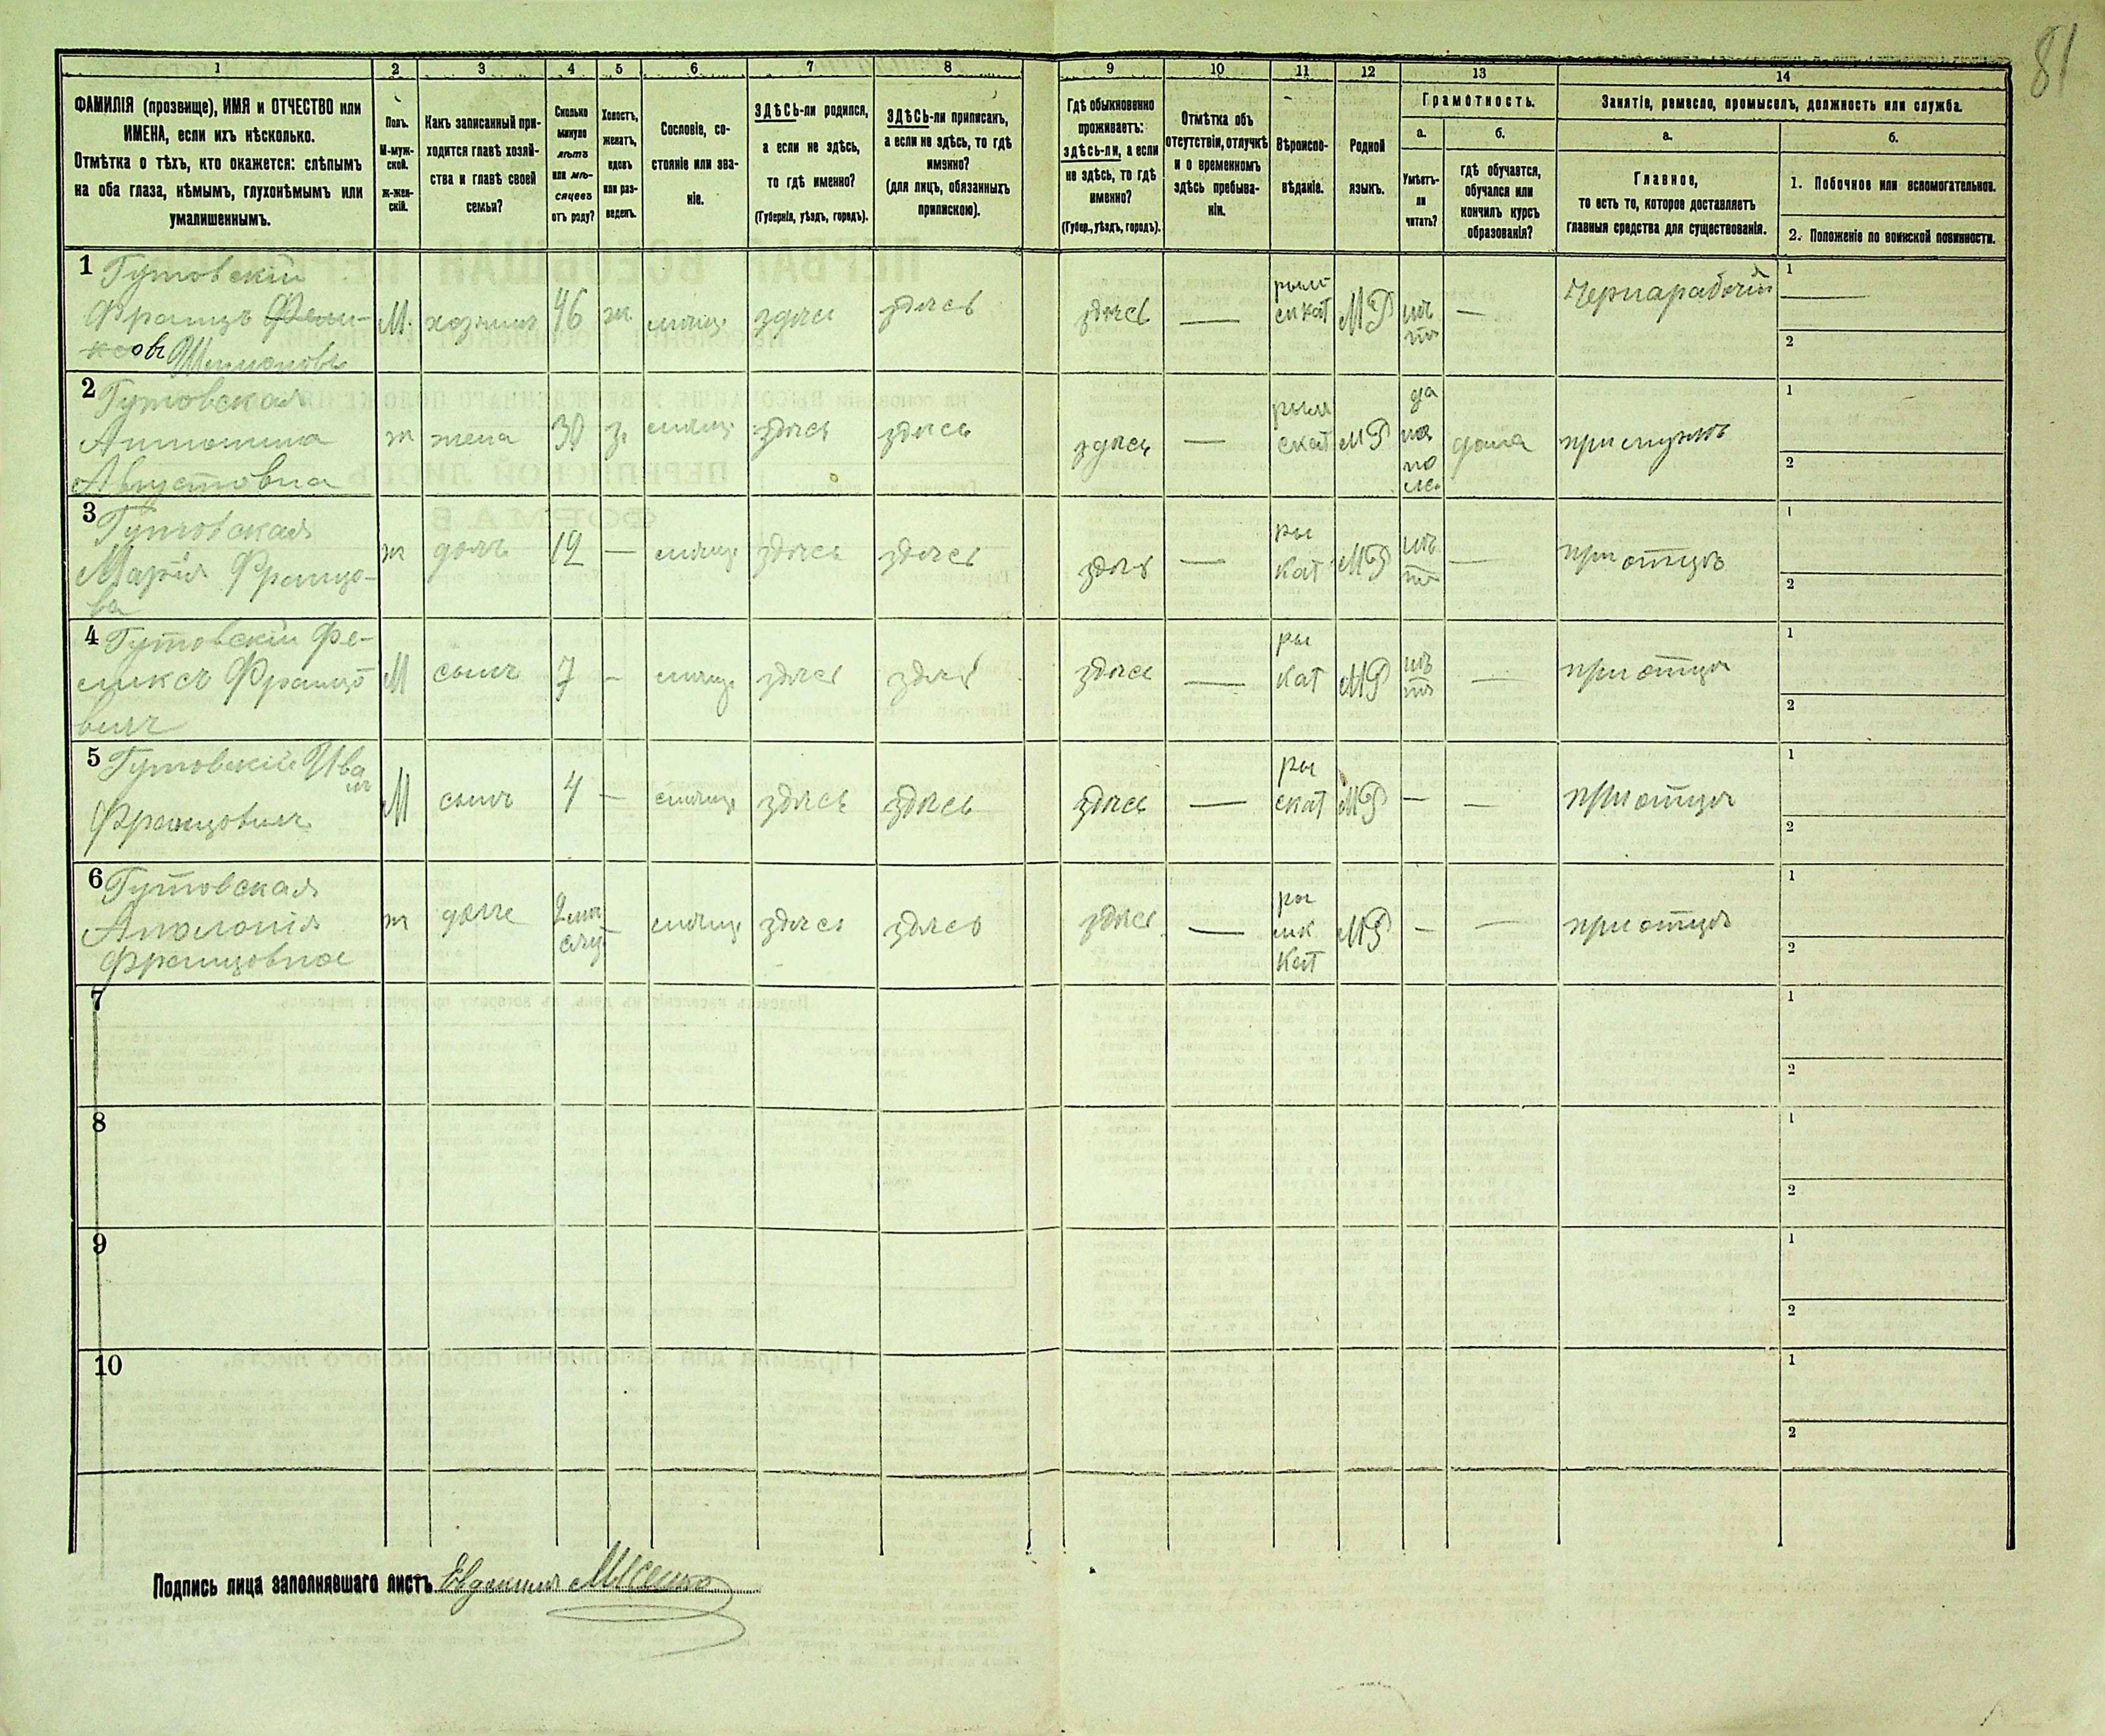 81
1 2 3 4 5 6 7 8 9 10 11 12 13 14
ФАМИЛІЯ (прозвище), ИМЯ и ОТЧЕСТВО или
ИМЕНА, если ихъ нѣсколько.
Отмѣтка о тѣхъ, кто окажется: слѣпымъ
на оба глаза, нѣмымъ, глухонѣмымъ или
умалишеннымъ.
Полъ.
М-муж-
ской.
Ж-жен-
скій.
Какъ записанный при-
ходится главѣ хозяй-
ства и главѣ своей
семьи?
Сколько
минуло
лѣтъ
или мѣ-
сяцевъ
отъ роду?
Холостъ,
женатъ,
вдовъ
или раз-
веденъ.
Сословіе, со-
стояніе или зва-
ніе.
ЗДѢСЬ-ли родился,
а если не здѣсь,
то гдѣ именно?
(Губернія, уѣздъ, городъ).
ЗДѢСЬ-ли приписанъ,
а если не здѣсь, то гдѣ
именно?
(для лицъ, обязанныхъ
припискою).
Гдѣ обыкновенно
проживаетъ:
здѣсь-ли, а если
не здѣсь, то гдѣ
именно?
(Губер., уѣздъ, городъ).
Отмѣтка объ
отсутствіи, отлучкѣ
и о временномъ
здѣсь пребыва-
ніи.
Вѣроиспо-
вѣданіе.
Родной
языкъ.
Грамотность.
а.
Умѣетъ-
ли
читать?
б.
гдѣ обучается,
обучался или
кончилъ курсъ
образованія?
Занятіе, ремесло, промыселъ, должность или служба.
а.
Главное,
то есть то, которое доставляетъ
главныя средства для существованія.
б.
1. Побочное или вспомогательное.
2. Положеніе по воинской повинности.
1 Гутовскій
Францъ Фели-
ксовъ Шимоновъ
М. хозяинъ 46 ж здѣсь здѣсь здѣсь — МР нѣтъ — Чернарабочій
1 —
2
2 Гутовская
Антонина
Августовна
ж жена 30 з. здѣсь здѣсь здѣсь — МР да дома при мужѣ
1
2
3 Гутовская
Марія Францо-
ва
ж дочь 12 — здѣсь здѣсь здѣсь — ры кат МР нѣтъ — при отцѣ
1
2
4 Гутовскій Фе-
ликсъ Францо
вичъ
М сынъ 7 - здѣсь здѣсь здѣсь — ры кат МР нѣтъ — при отцѣ
1
2
5 Гутовскій Иванъ
Францовичъ
М сынъ 4 - здѣсь здѣсь здѣсь — ры скат МР — — при отцѣ
1
2
6 Гутовская
Аполонія
Францовна
ж дочь здѣсь здѣсь здѣсь — МР — — при отцѣ
1
2
7
1
2
8
1
2
9
1
2
10
1
2
Подпись лица заполнявшаго листъ